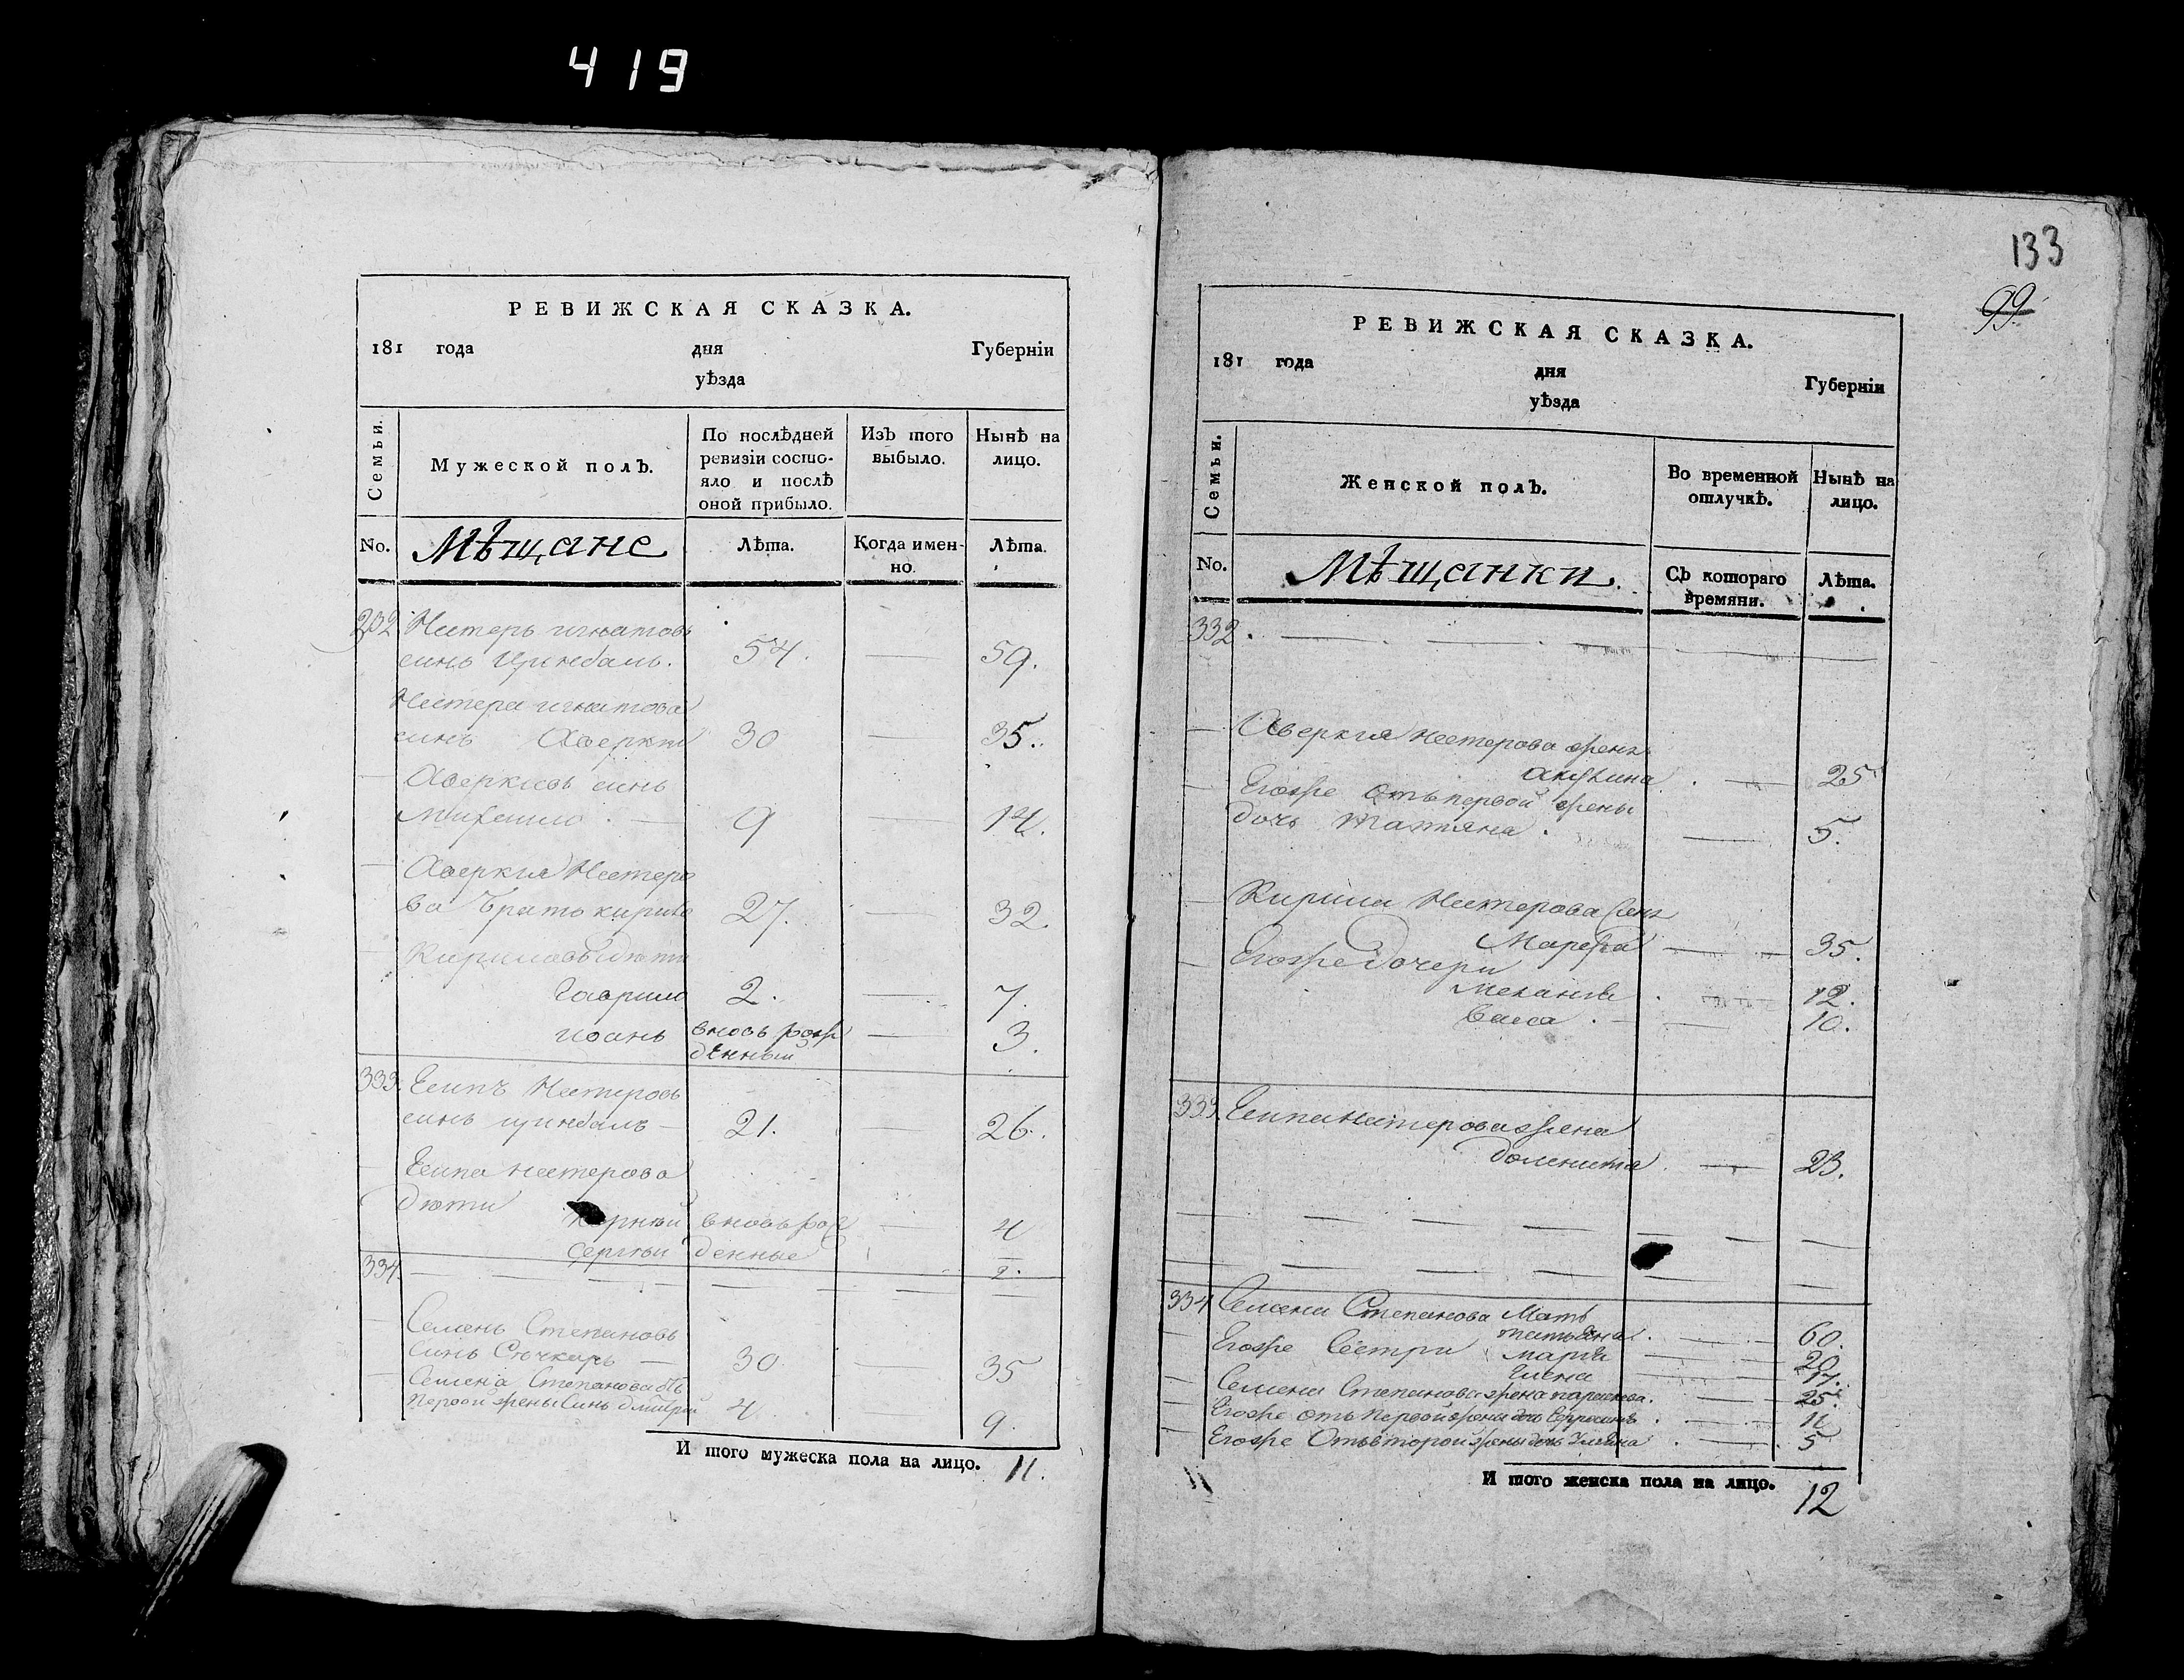 419
РЕВИЖСКАЯ СКАЗКА.
181 года дня Губерніи
уѣзда
Семьи.
Мужеской полъ.
По послѣдней ревизіи состо-
яло и послѣ оной прибыло.
Изъ того выбыло.
Нынѣ на лицо.
No. Мѣщане Лѣта. Когда имен-
но. Лѣта.
332 Нестеръ игнатовъ
синъ Цимбалъ. 54. 59.
Нестера игнатова
синъ Аверкій 30 35.
Аверкіевъ синъ
Михайло 9 14.
Аверкія Нестеро
ва братъ кирило 27. 32.
Кириловы дѣти
Гаврило 2. 7.
иоанъ вновь рож
денный 3.
333. Есипъ Нестеровъ
синъ цинбалъ 21. 26.
Есипа нестерова
дѣти Корнѣй вновь рож 4
Сергѣй денные 2.
334.
Семенъ Степановъ
Синъ Сѣчкарь 30 35
Семена Степанова отъ
Первой жены Синъ дмитрій 4 9.
И того мужеска пола на лицо. 11.
133
99
РЕВИЖСКАЯ СКАЗКА.
181 года дня Губерніи
уѣзда
Семьи.
Женской полъ.
Во временной отлучкѣ.
Нынѣ на лицо.
No. Мѣщанки. Съ котораго
времяни. Лѣта.
332.
Аверкія нестерова жена
акулина 25
Егожъ отъ первой жены
дочь татяна. 5.
Кирила Нестерова жена
Марфа 35.
Егоже дочери
Меланія 12.
Васса 10.
333. Есипа нестерова жена
23.
334 Семена Степанова Мать
татьяна. 60.
Егоже Сестри марія 20.
Елена 17.
Семена Степанова жена параскева 25.
Егоже отъ Первой жены дочь Ефросинія 11
Егоже Отъ второй жены дочь Улияна 5
И того женска пола на лицо. 12
11